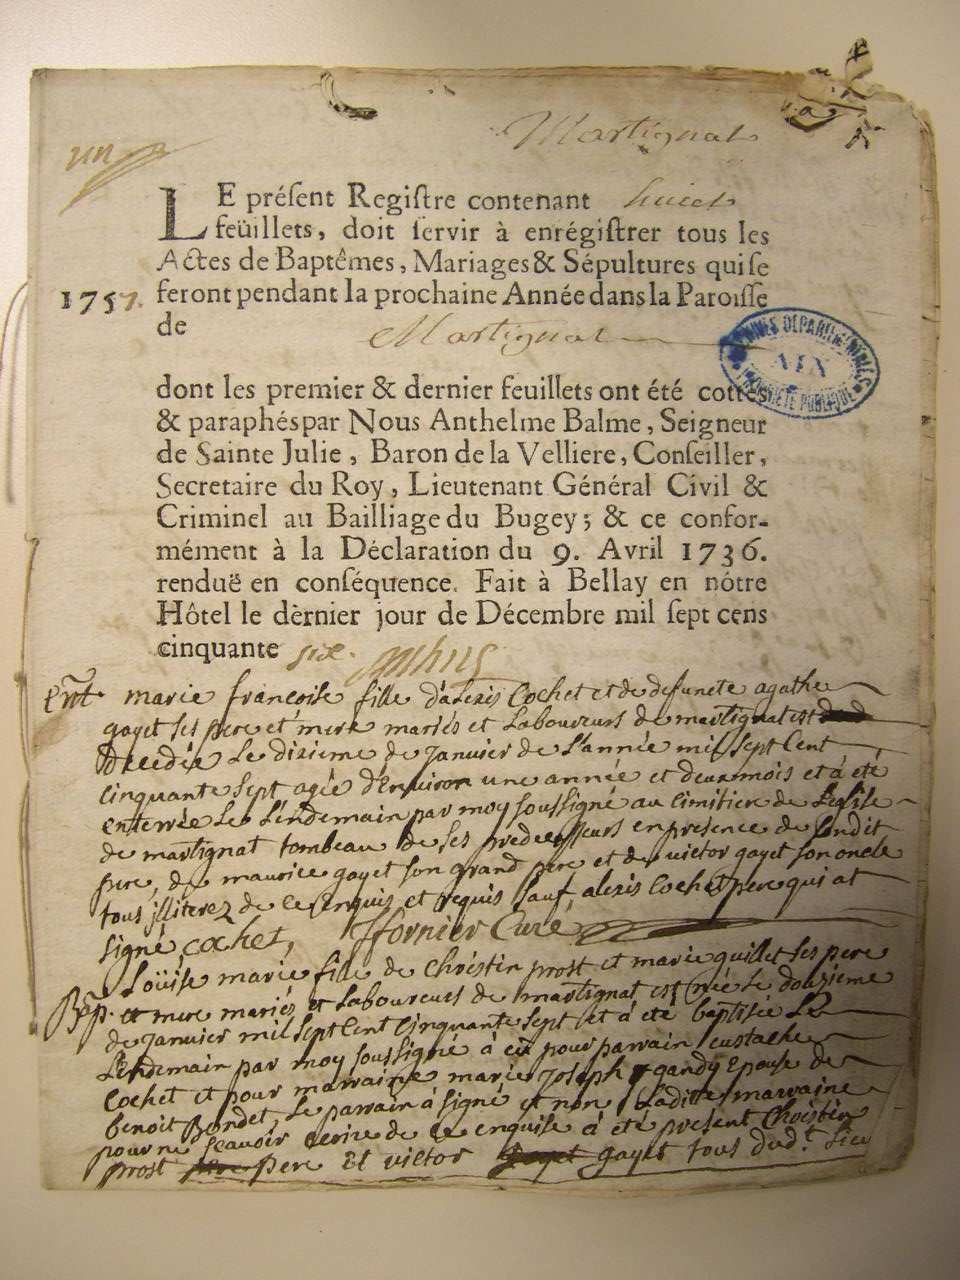 Martignat
un
LE préſent Regiſtre contenant huict
feüillets, doit ſervir à enrégiſtrer tous les
Actes de Baptêmes, Mariages & Sépultures qui ſe
1757. feront pendant la prochaine Année dans la Paroiſſe
de Martignat
ARCHIVES DÉPARTEMENTALES
AIN
PROPRIÉTÉ PUBLIQUE
dont les premier & dernier feuillets ont été cottés
& paraphés par Nous Anthelme Balme, Seigneur
de Sainte Julie, Baron de la Velliere, Conſeiller,
Secretaire du Roy, Lieutenant Général Civil &
Criminel au Bailliage du Bugey; & ce confor-
mément à la Déclaration du 9. Avril 1736.
renduë en conſéquence. Fait à Bellay en nôtre
Hôtel le dèrnier jour de Décembre mil ſept cens
cinquante six.
Ent marie françoise fille d'alexis Cochet et de defuncte agathe
gayet ses pere et mere mariés et Laboureurs de martignat est
decedée Le dixieme de Janvier de L'année mil sept Cent
cinquante sept agée d'Environ une année et deux mois et à été
enterrée Le Lendemain par moy soussigné au Cimitiere de L'eglise
de martignat tombeau de ses predecesseurs en presence de Sondit
pere, de maurice gayet son grand pere et de victor gayet son oncle
tous illiterez de ce enquis et requis sauf alexis Cochet pere qui at
signé, cochet, Ffornier Curé
Loüise marie fille de Chréstin prost et marie quillet ses pere
Bap. et mere mariés et Laboureurs de martignat est née Le douzieme
de Janvier mil sept Cent Cinquante sept et à eté baptisée Le
Lendemain par moy soussigné à eü pour parrain Eustache
Cochet et pour marraine marie Joseph gandy Epouse de
benoit Bondet, Le parrain à signé et non Laditte marraine
pour ne sçavoir écrire de ce enquise à été present Chréstin
prost pere Et victor gayet tous dud.t Lieu